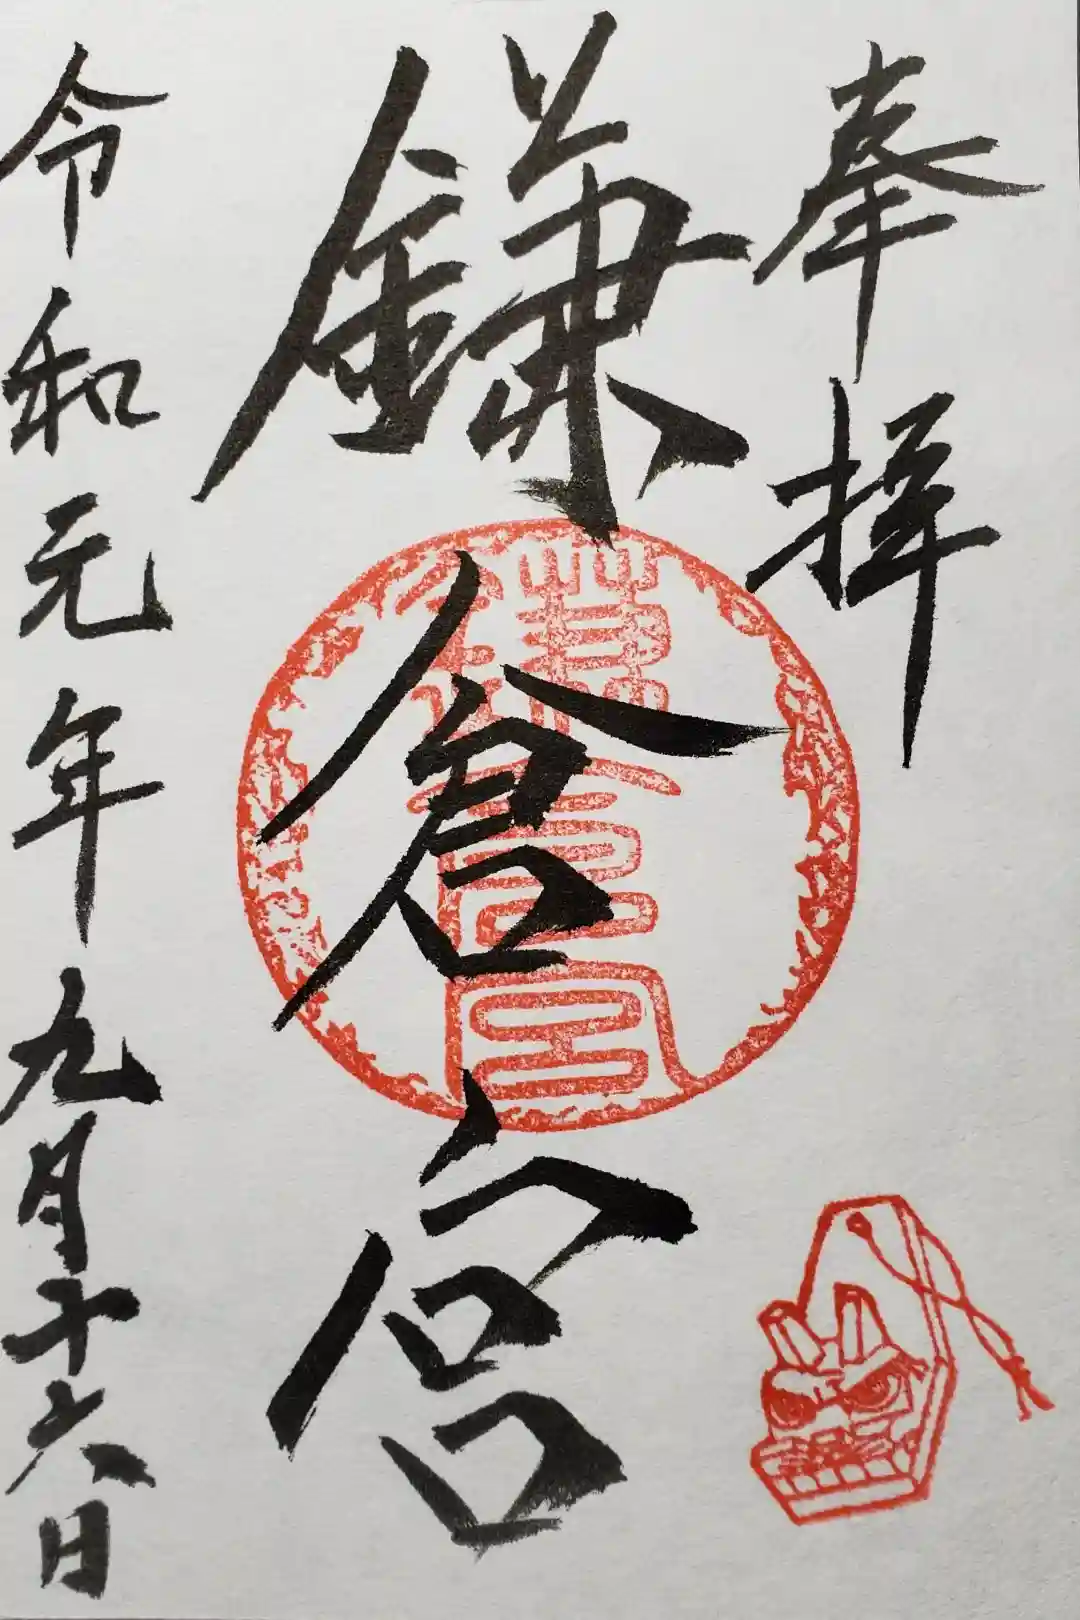 奉拝
鎌倉宮
鎌倉宮
令和元年九月十六日